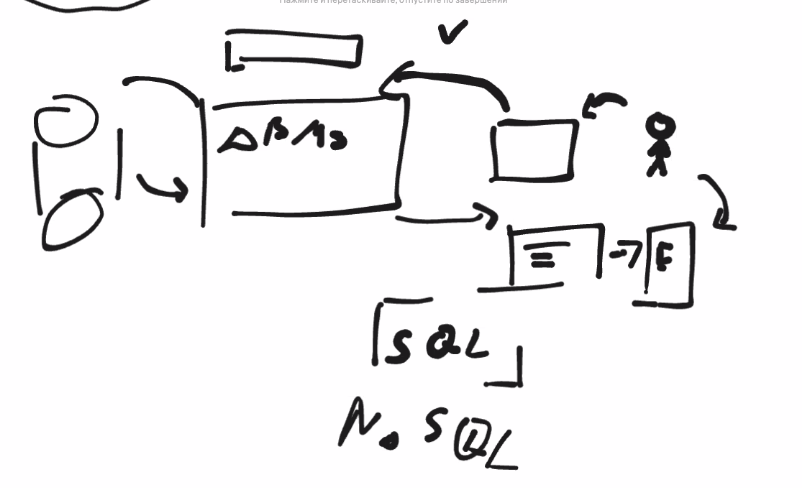 Нажмите и перетаскивайте, отпустите по завершении
DBMS
E
SQL
No SQL